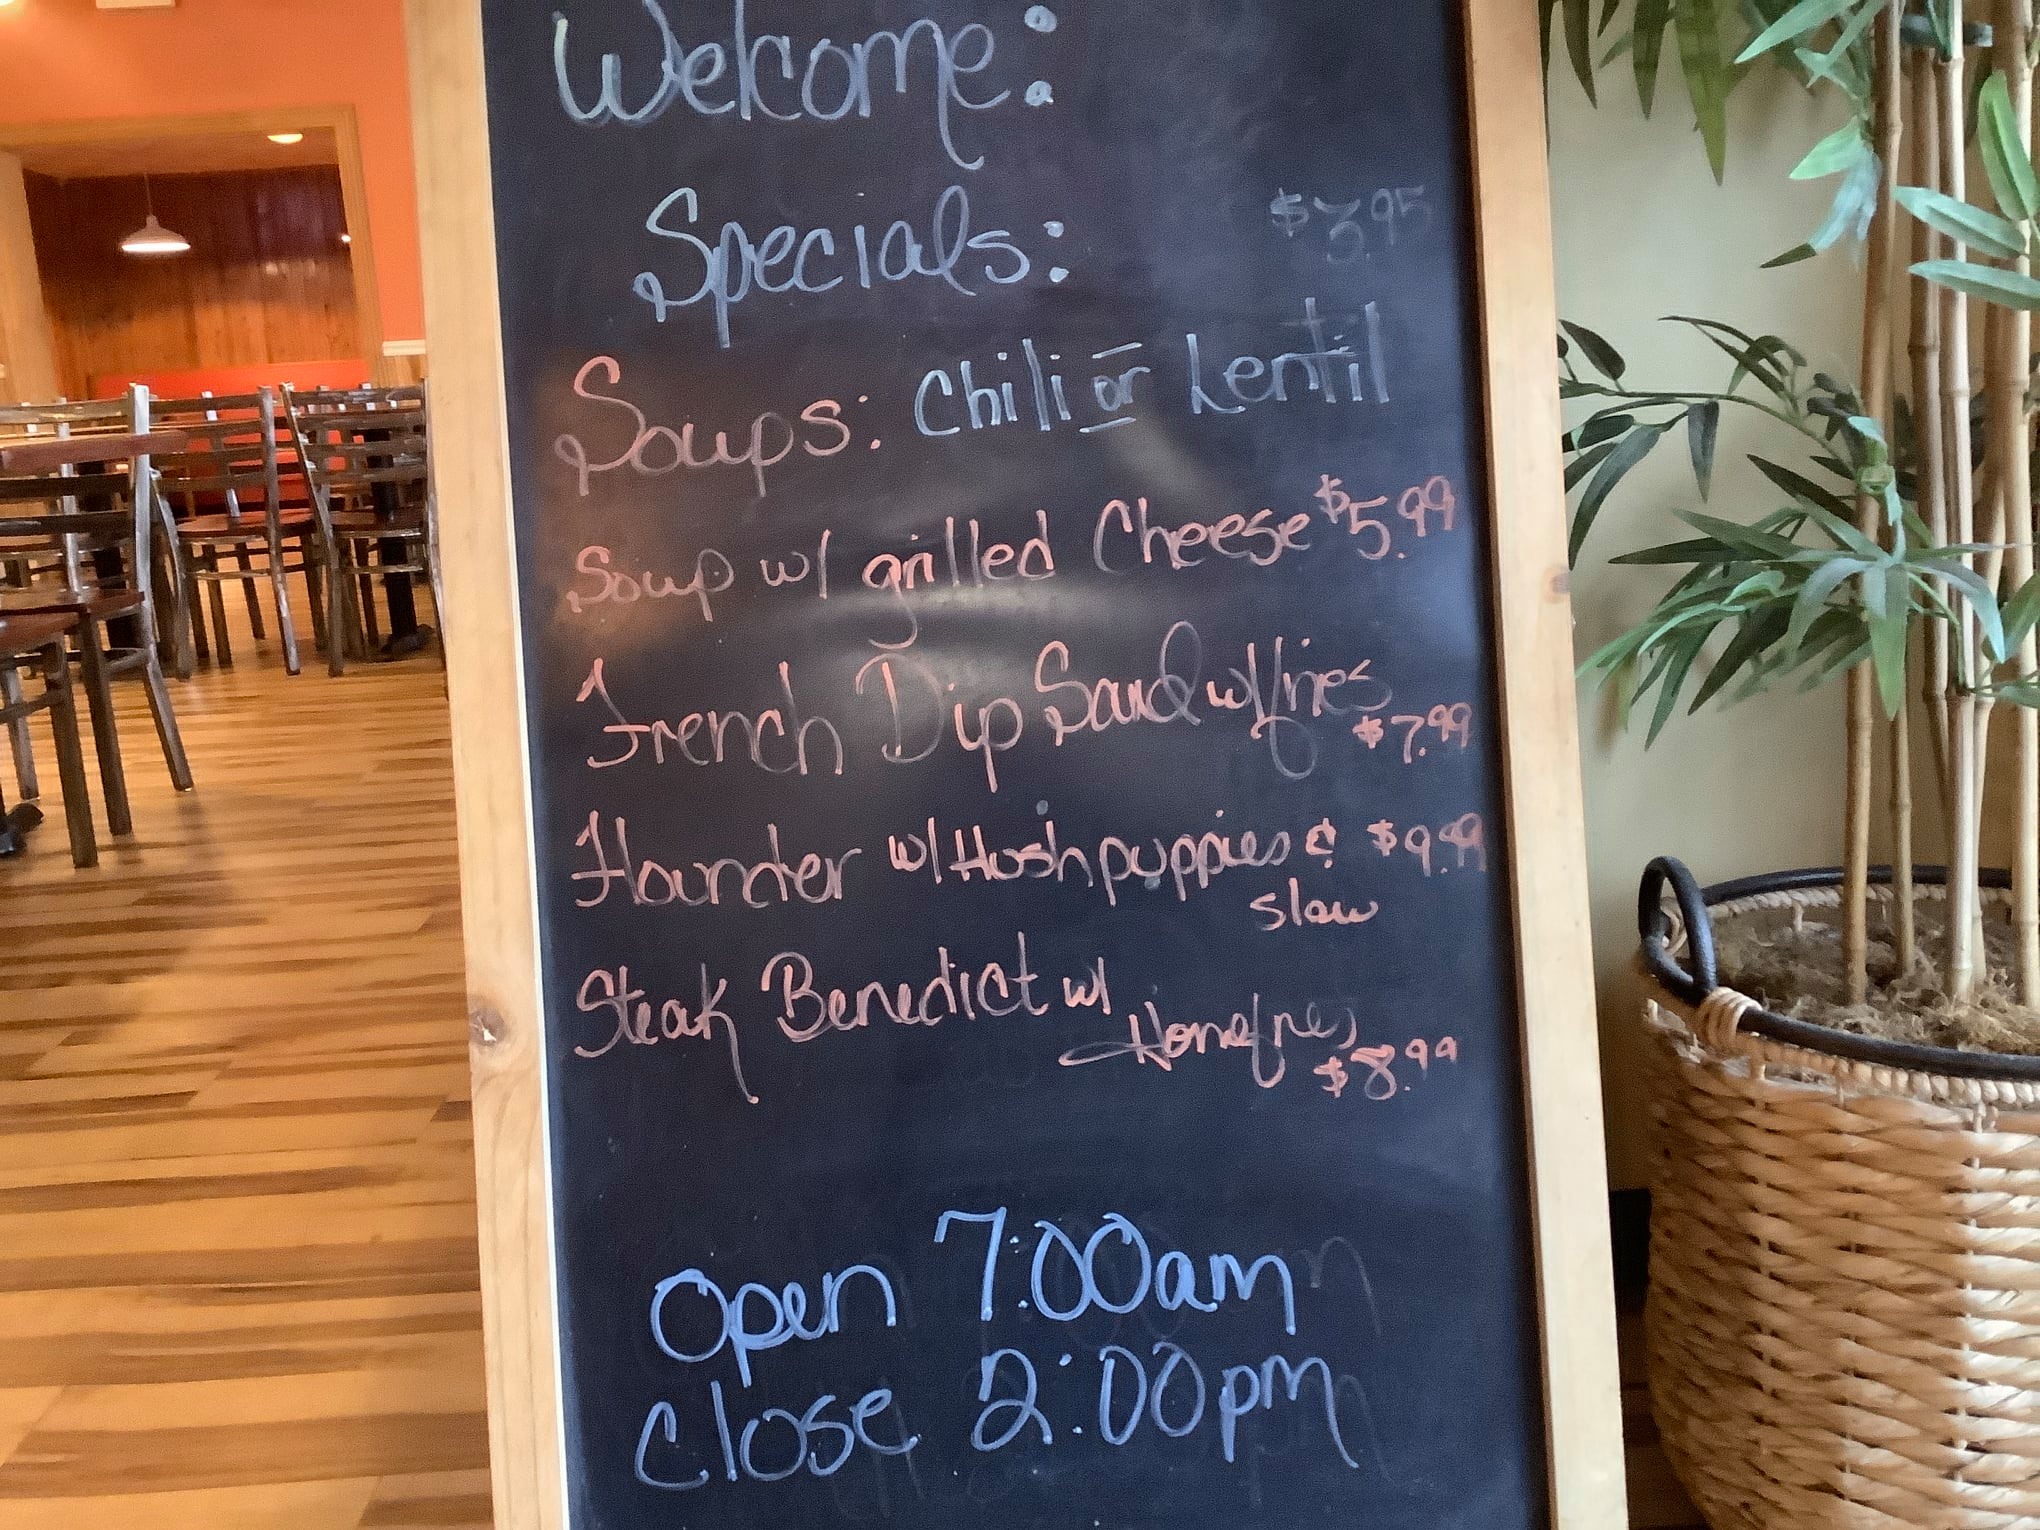 Welcome:
Specials:
$3.95
Soups: Chili or Lentil
Soup w/ grilled Cheese $5.99
French Dip Sand w/fries
$7.99
Flounder w/Hushpuppies & $9.99
slaw
Steak Benedict w/
Homefries
$8.99
Open 7:00am
Close 2:00pm